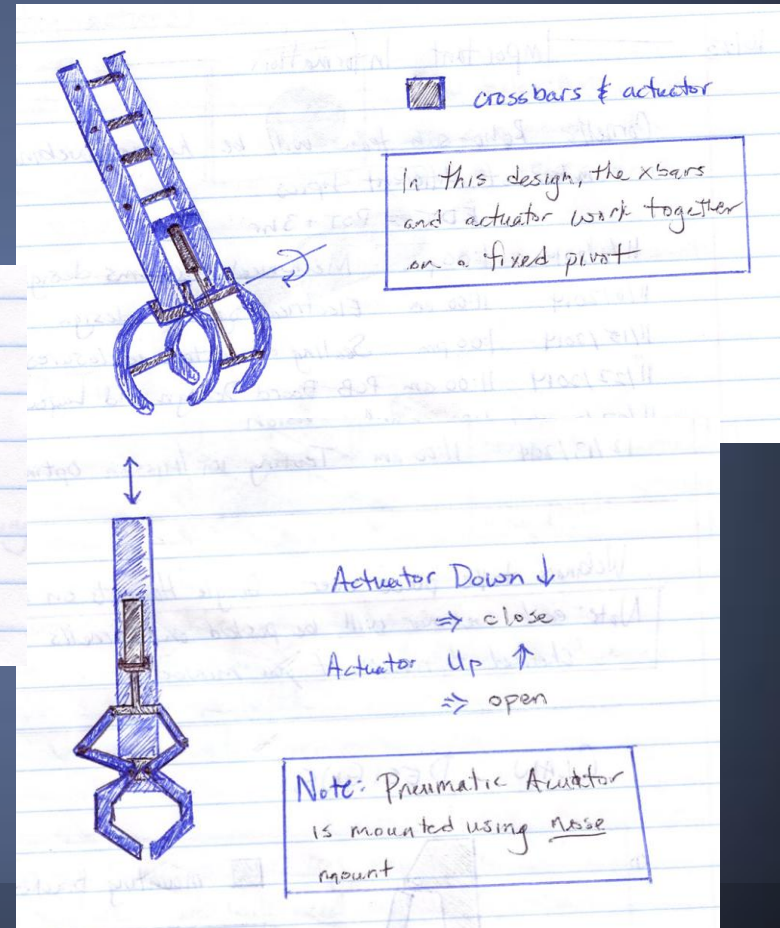 crossbars & actuator
In this design, the xbars
and actuator work together
on a fixed pivot
Actuator Down ↓
⇒ close
Actuator Up ↑
⇒ open
Note: Pneumatic
is mounted using nose
mount